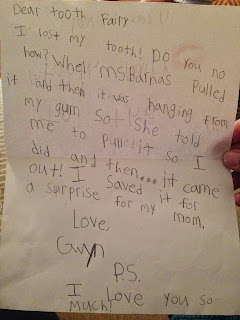 Dear tooth Fairy
I lost my tooth! Do you no
how? When Ms Barnas Pulled
it and then it was hanging from
my gum so she told
me to Pull it so I
did and then... it came
out! I saved it for
a surprise for my mom.
Love,
Gwyn
P.S.
I Love you so
much!